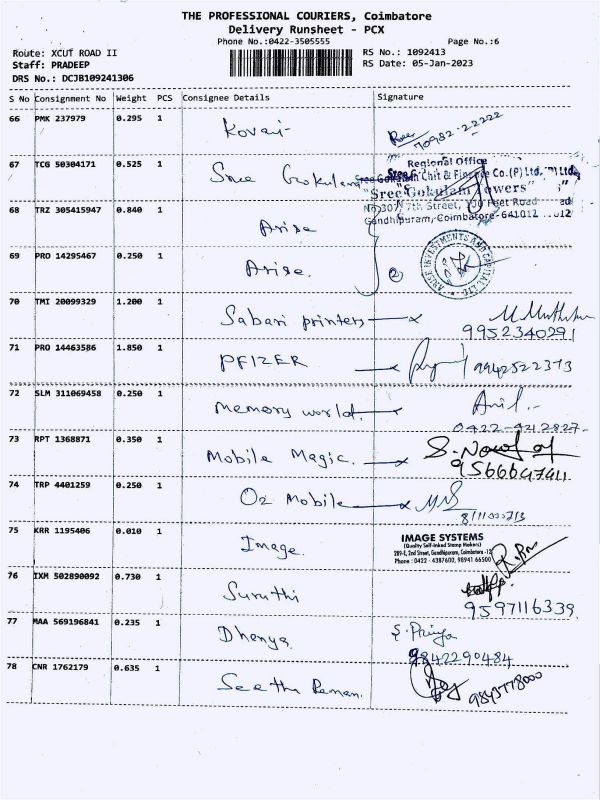 THE PROFESSIONAL COURIERS, Coimbatore
Delivery Runsheet - PCX
Phone No.:0422-3505555 Page No.:6
Route: XCUT ROAD II RS No.: 1092413
Staff: PRADEEP RS Date: 05-Jan-2023
DRS No.: DCJB109241306
S No Consignment No Weight PCS Consignee Details Signature
66 PMK 237979 0.295 1 Kovai 70982-22222
67 TCG 50304171 0.525 1 Sree Gokulam
Regional Office
Sree Gokulam Chit & Finance Co.(P) Ltd.
"Sree Gokulam Towers"
No.307, 7th Street, 100 Feet Road
Gandhipuram, Coimbatore-641012
68 TRZ 305415947 0.840 1 Arise
69 PRO 14295467 0.250 1 Arise. 2
ARISE INVESTMENTS AND CAPITAL LTD
70 TMI 20099329 1.200 1 Sabari printers M. Muthu
9952340291
71 PRO 14463586 1.850 1 PFIZER 9942522373
72 SLM 311069458 0.250 1 memory world. Anil
0422-4212827
73 RPT 1368871 0.350 1 Mobile Magic.
9566647911
74 TRP 4401259 0.250 1 O2 Mobile
75 KRR 1195406 0.010 1 Image.
IMAGE SYSTEMS
(Quality Self-Inked Stamp Makers)
289-E, 2nd Street, Gandhipuram, Coimbatore -12
Phone : 0422 - 4387600, 98941 66500
76 IXM 502890092 0.730 1 Suruthi
9597116339
77 MAA 569196841 0.235 1 Dhenya S. Priya
9842290484
78 CNR 1762179 0.635 1 Seetha Raman. 9843778000